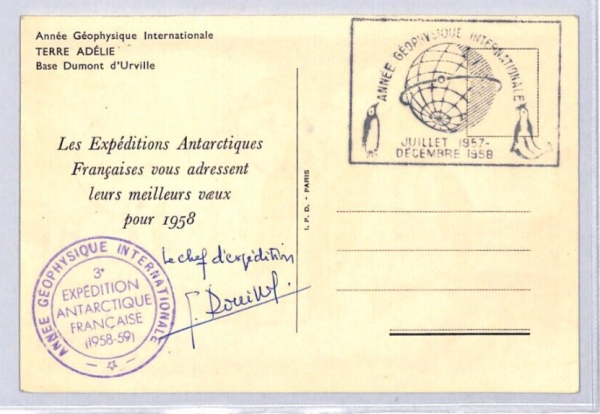 Année Géophysique Internationale
TERRE ADÉLIE
Base Dumont d'Urville
Les Expéditions Antarctiques
Françaises vous adressent
leurs meilleurs vœux
pour 1958
Le chef d'expédition
ANNÉE GÉOPHYSIQUE INTERNATIONALE
3e
EXPÉDITION
ANTARCTIQUE
FRANÇAISE
(1958-59)
I. P. D. - PARIS
ANNÉE GÉOPHYSIQUE INTERNATIONALE
JUILLET 1957-
DÉCEMBRE 1958